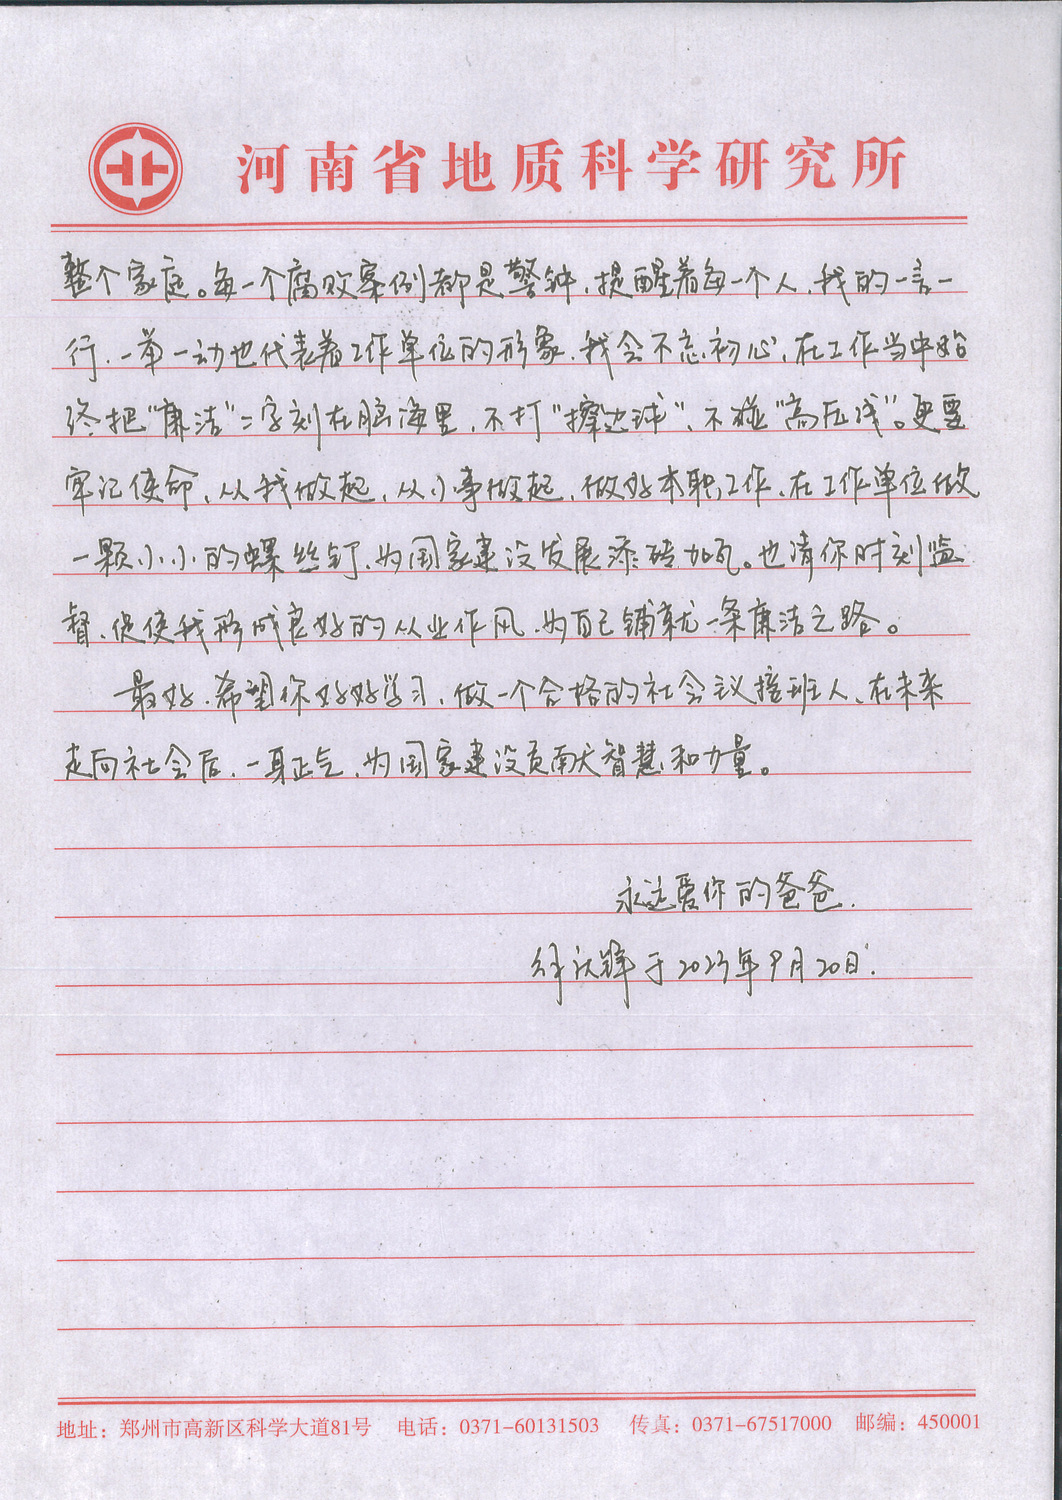 河南省地质科学研究所
整个家庭。每一个腐败案例都是警钟，提醒着每一个人，我的一言一
行，一举一动也代表着工作单位的形象，我会不忘初心，在工作当中始
终把“廉洁”二字刻在脑海里，不打“擦边球”、不碰“高压线”。更要
牢记使命，从我做起，从小事做起，做好本职工作，在工作单位做
一颗小小的螺丝钉，为国家建设发展添砖加瓦。也请你时刻监
督，促使我形成良好的从业作风，为自己铺就一条廉洁之路。
最好，希望你好好学习，做一个合格的社会议接班人，在未来
走向社会后，一身正气，为国家建设贡献智慧和力量。
永远爱你的爸爸.
于2023年9月20日.
地址：郑州市高新区科学大道81号 电话：0371-60131503 传真：0371-67517000 邮编：450001